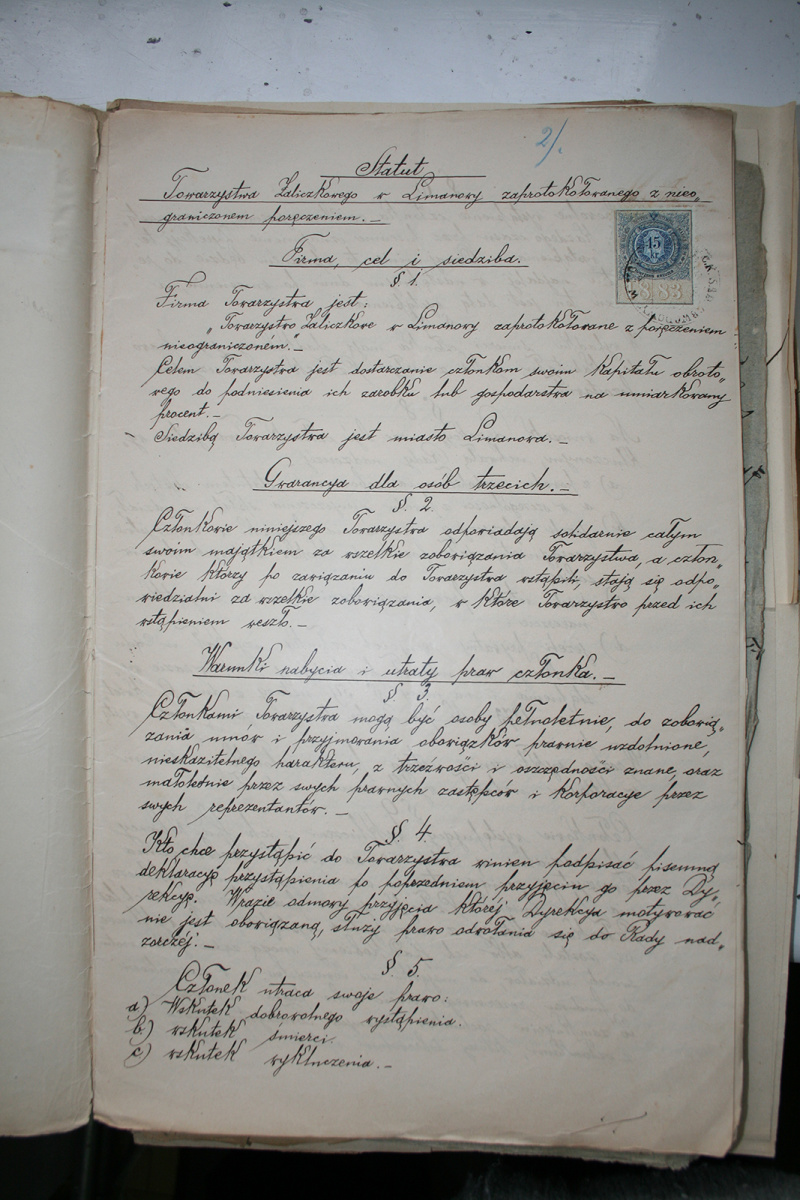 2/.
Statut
Towarzystwa Zaliczkowego w Limanowy zaprotokołowanego z nieo„
graniczonem poręczeniem.—
Firma, cel i siedziba.
§ 1.
Firma Towarzystwa jest:
„Towarzystwo Zaliczkowe w Limanowy zaprotokołowane z poręczeniem
nieograniczoném."—
Celem Towarzystwa jest dostarczanie członkom swoim kapitału obroto„
wego do podniesienia ich zarobku lub gospodarstwa na umiarkowany
procent.—
Siedzibą Towarzystwa jest miasto Limanowa.—
Gwarancya dla osób trzecich.—
§. 2.
Członkowie niniejszego Towarzystwa odpowiadają solidarnie całym
swoim majątkiem za wszelkie zobowiązania Towarzystwa, a człon„
kowie którzy po zawiązaniu do Towarzystwa wstąpili, stają się odpo„
wiedzialni za wszelkie zobowiązania, w które Towarzystwo przed ich
wstąpieniem weszło.—
Warunki nabycia i utraty praw członka.—
§ 3.
Członkami Towarzystwa mogą być osoby pełnoletnie, do zobowią„
zania umów i przyjmowania obowiązków prawnie uzdolnione,
nieskazitelnego charakteru, z trzeźwości i oszczędności znane, oraz
małoletnie przez swych prawnych zastępców i korporacye przez
swych reprezentantów.—
§. 4.
Kto chce przystąpić do Towarzystwa winien podpisać pisemną
deklaracyę przystąpienia po poprzedniem przyjęciu go przez Dy„
rekcyę. Wrazie odmowy przyjęcia któréj Dyrekcya motywować
nie jest obowiązaną, służy prawo odwołania się do Rady nad„
zorczéj.—
§. 5.
Członek utraca swoje prawo:
a) Wskutek dobrowolnego wystąpienia.
b) wskutek śmierci.
c) wskutek wykluczenia.—
15
kr.
1883